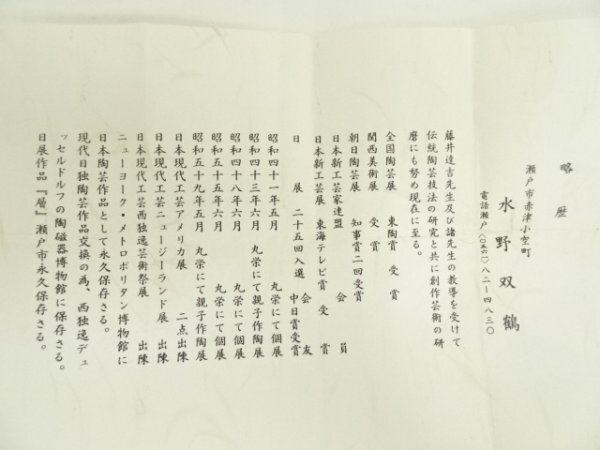 略歴
瀬戸市赤津小空町
水野双鶴
電話瀬戸(〇五六一)八二ー四八三〇
藤井達吉先生及び諸先生の教導を受けて
伝統陶芸技法の研究と共に創作芸術の研
磨にも努め現在に至る。
全国陶芸展 東陶賞受賞
関西美術展 受賞
朝日陶芸展 知事賞二回受賞
日本新工芸家連盟 会員
日本新工芸展 東海テレビ賞受賞
日展 二十五回入選 会友 中日賞受賞
昭和四十一年五月 丸栄にて個展
昭和四十三年六月 丸栄にて親子作陶展
昭和四十八年六月 丸栄にて個展
昭和五十五年六月 丸栄にて個展
昭和五十九年五月 丸栄にて親子作陶展
日本現代工芸アメリカ展 二点出陳
日本現代工芸ニュージーランド展 出陳
日本現代工芸西独逸芸術祭展 出陳
ニューヨーク・メトロポリタン博物館に
日本陶芸作品として永久保存さる。
現代日独陶芸作品交換の為、西独逸デュ
ッセルドルフの陶磁器博物館に保存さる。
日展作品『層』瀬戸市永久保存さる。